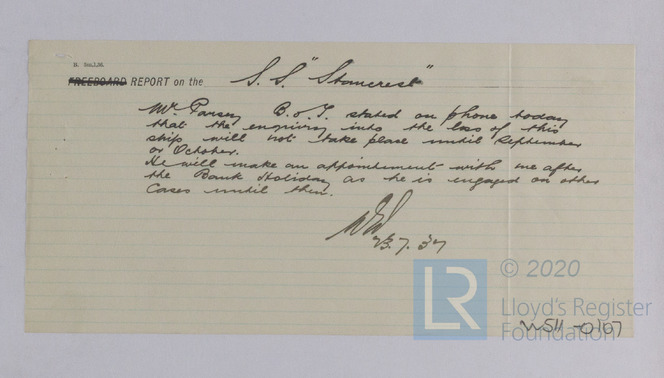 FREEBOARD REPORT on the S.S. "Stancrest"
Mr Farsey B.o.T. stated on phone today
that the enquiry into the loss of this
ship will not take place until September
or October.
He will make an appointment with me after
the Bank Holiday as he is engaged on other
Cases until then.
23.7.37
LR
© 2020
Lloyd's Register
Foundation
W511-0107